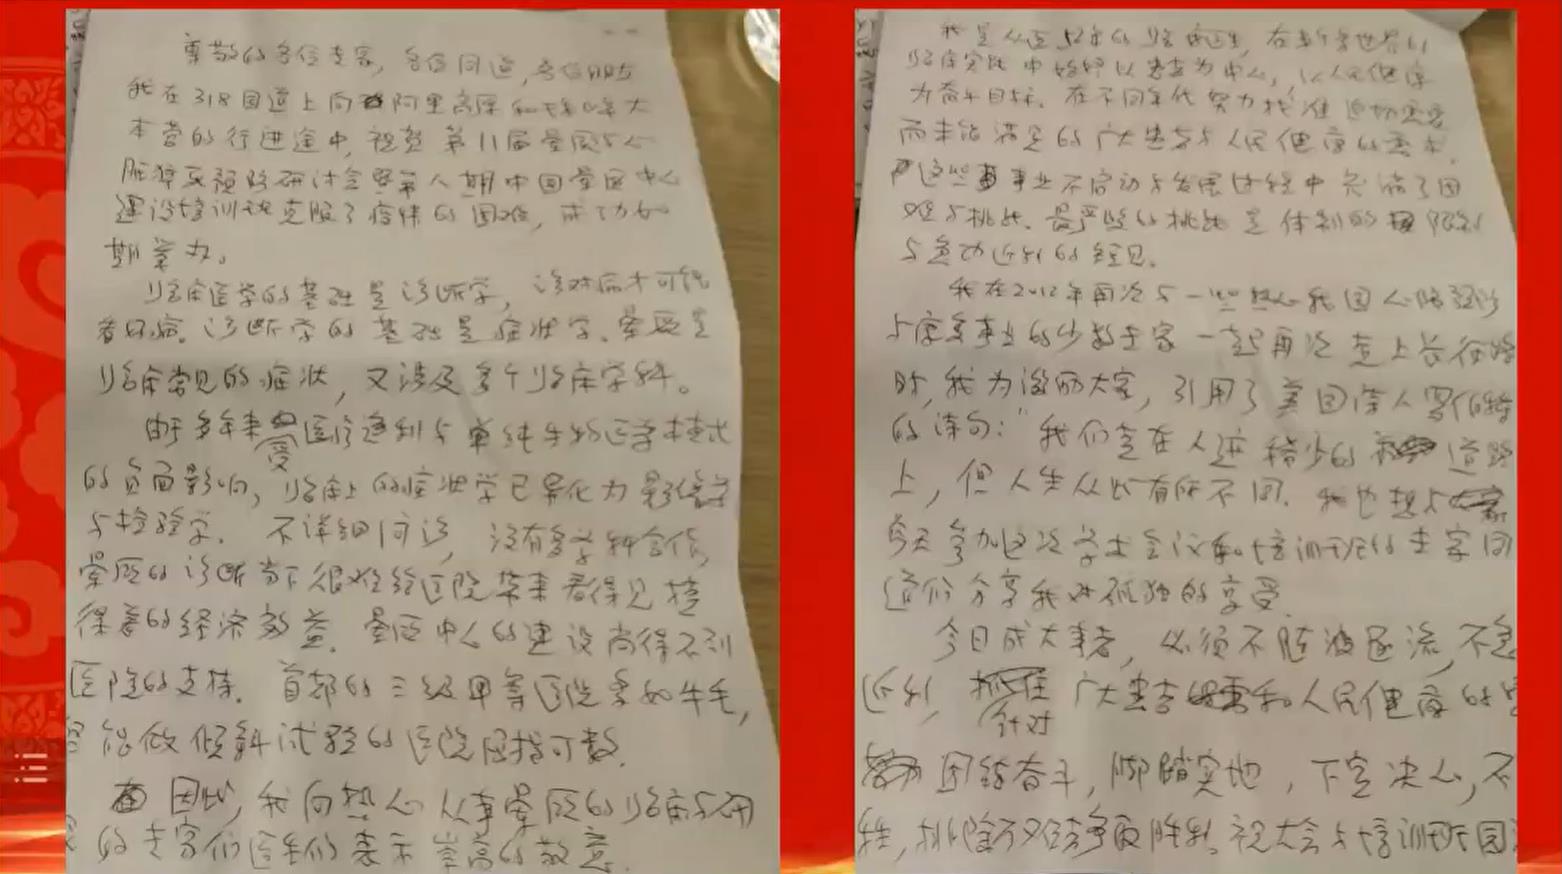 尊敬的各位专家，各位同道，各位朋友
我在318国道上向阿里高原和珠峰大
本营的行进途中，祝贺第11届晕厥与心
脏猝死预防研讨会暨第八期中国晕厥中心
建设培训班克服了疫情的困难，成功如
期举办。
临床医学的基础是诊断学，诊对病才可能
看好病。诊断学的基础是症状学。晕厥是
临床常见的症状，又涉及多个临床学科。
由于多年来受医疗逐利与单纯生物医学模式
的负面影响，临床上的症状学已异化为影像学
与检验学。不详细问诊，没有多学科合作，
晕厥的诊断当下很难给医院带来看得见摸
得着的经济效益。晕厥中心的建设尚得不到
医院的支持。首都的三级甲等医院多如牛毛，
能做倾斜试验的医院屈指可数。
因此，我向热心从事晕厥的临床与研
的专家们医生们表示崇高的敬意。
我是从医52年的临床医生，在半个多世纪的
临床实践中始终以患者为中心，以人民健康
为奋斗目标。在不同年代努力找准迫切需要
而未能满足的广大患者与人民健康的需求。
这些事业不启动与发展过程中充满了困
难与挑战。最严峻的挑战是体制的限制
与急功近利的短见。
我在2012年再次与一些热心我国心脏预防
与康复事业的少数专家一起再次走上长征路
时，我为激励大家，引用了美国诗人罗伯特
的诗句：“我们走在人迹稀少的道路
上，但人生从此有所不同。我也想与
今天参加这次学术会议和培训班的专家同
道们分享我对孤独的享受。
今日成大事者，必须不随波逐流，不急
近利，针对广大患者和人民健康的
团结奋斗，脚踏实地，下定决心，不
牲，排除万难争取胜利。祝大会与培训班圆